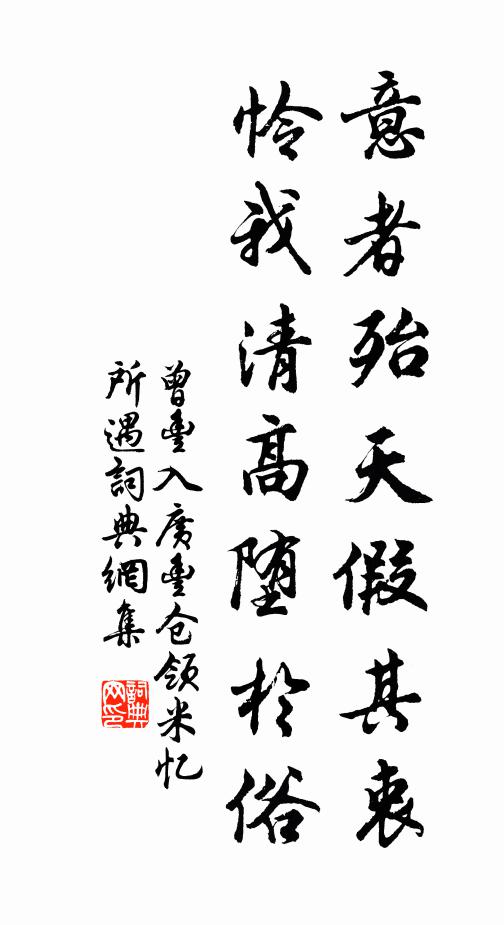 意者殆天假其衷
怜我清高堕於俗
曾豊入廣豊仓領米忆
所遇詞典網集
詞典网印